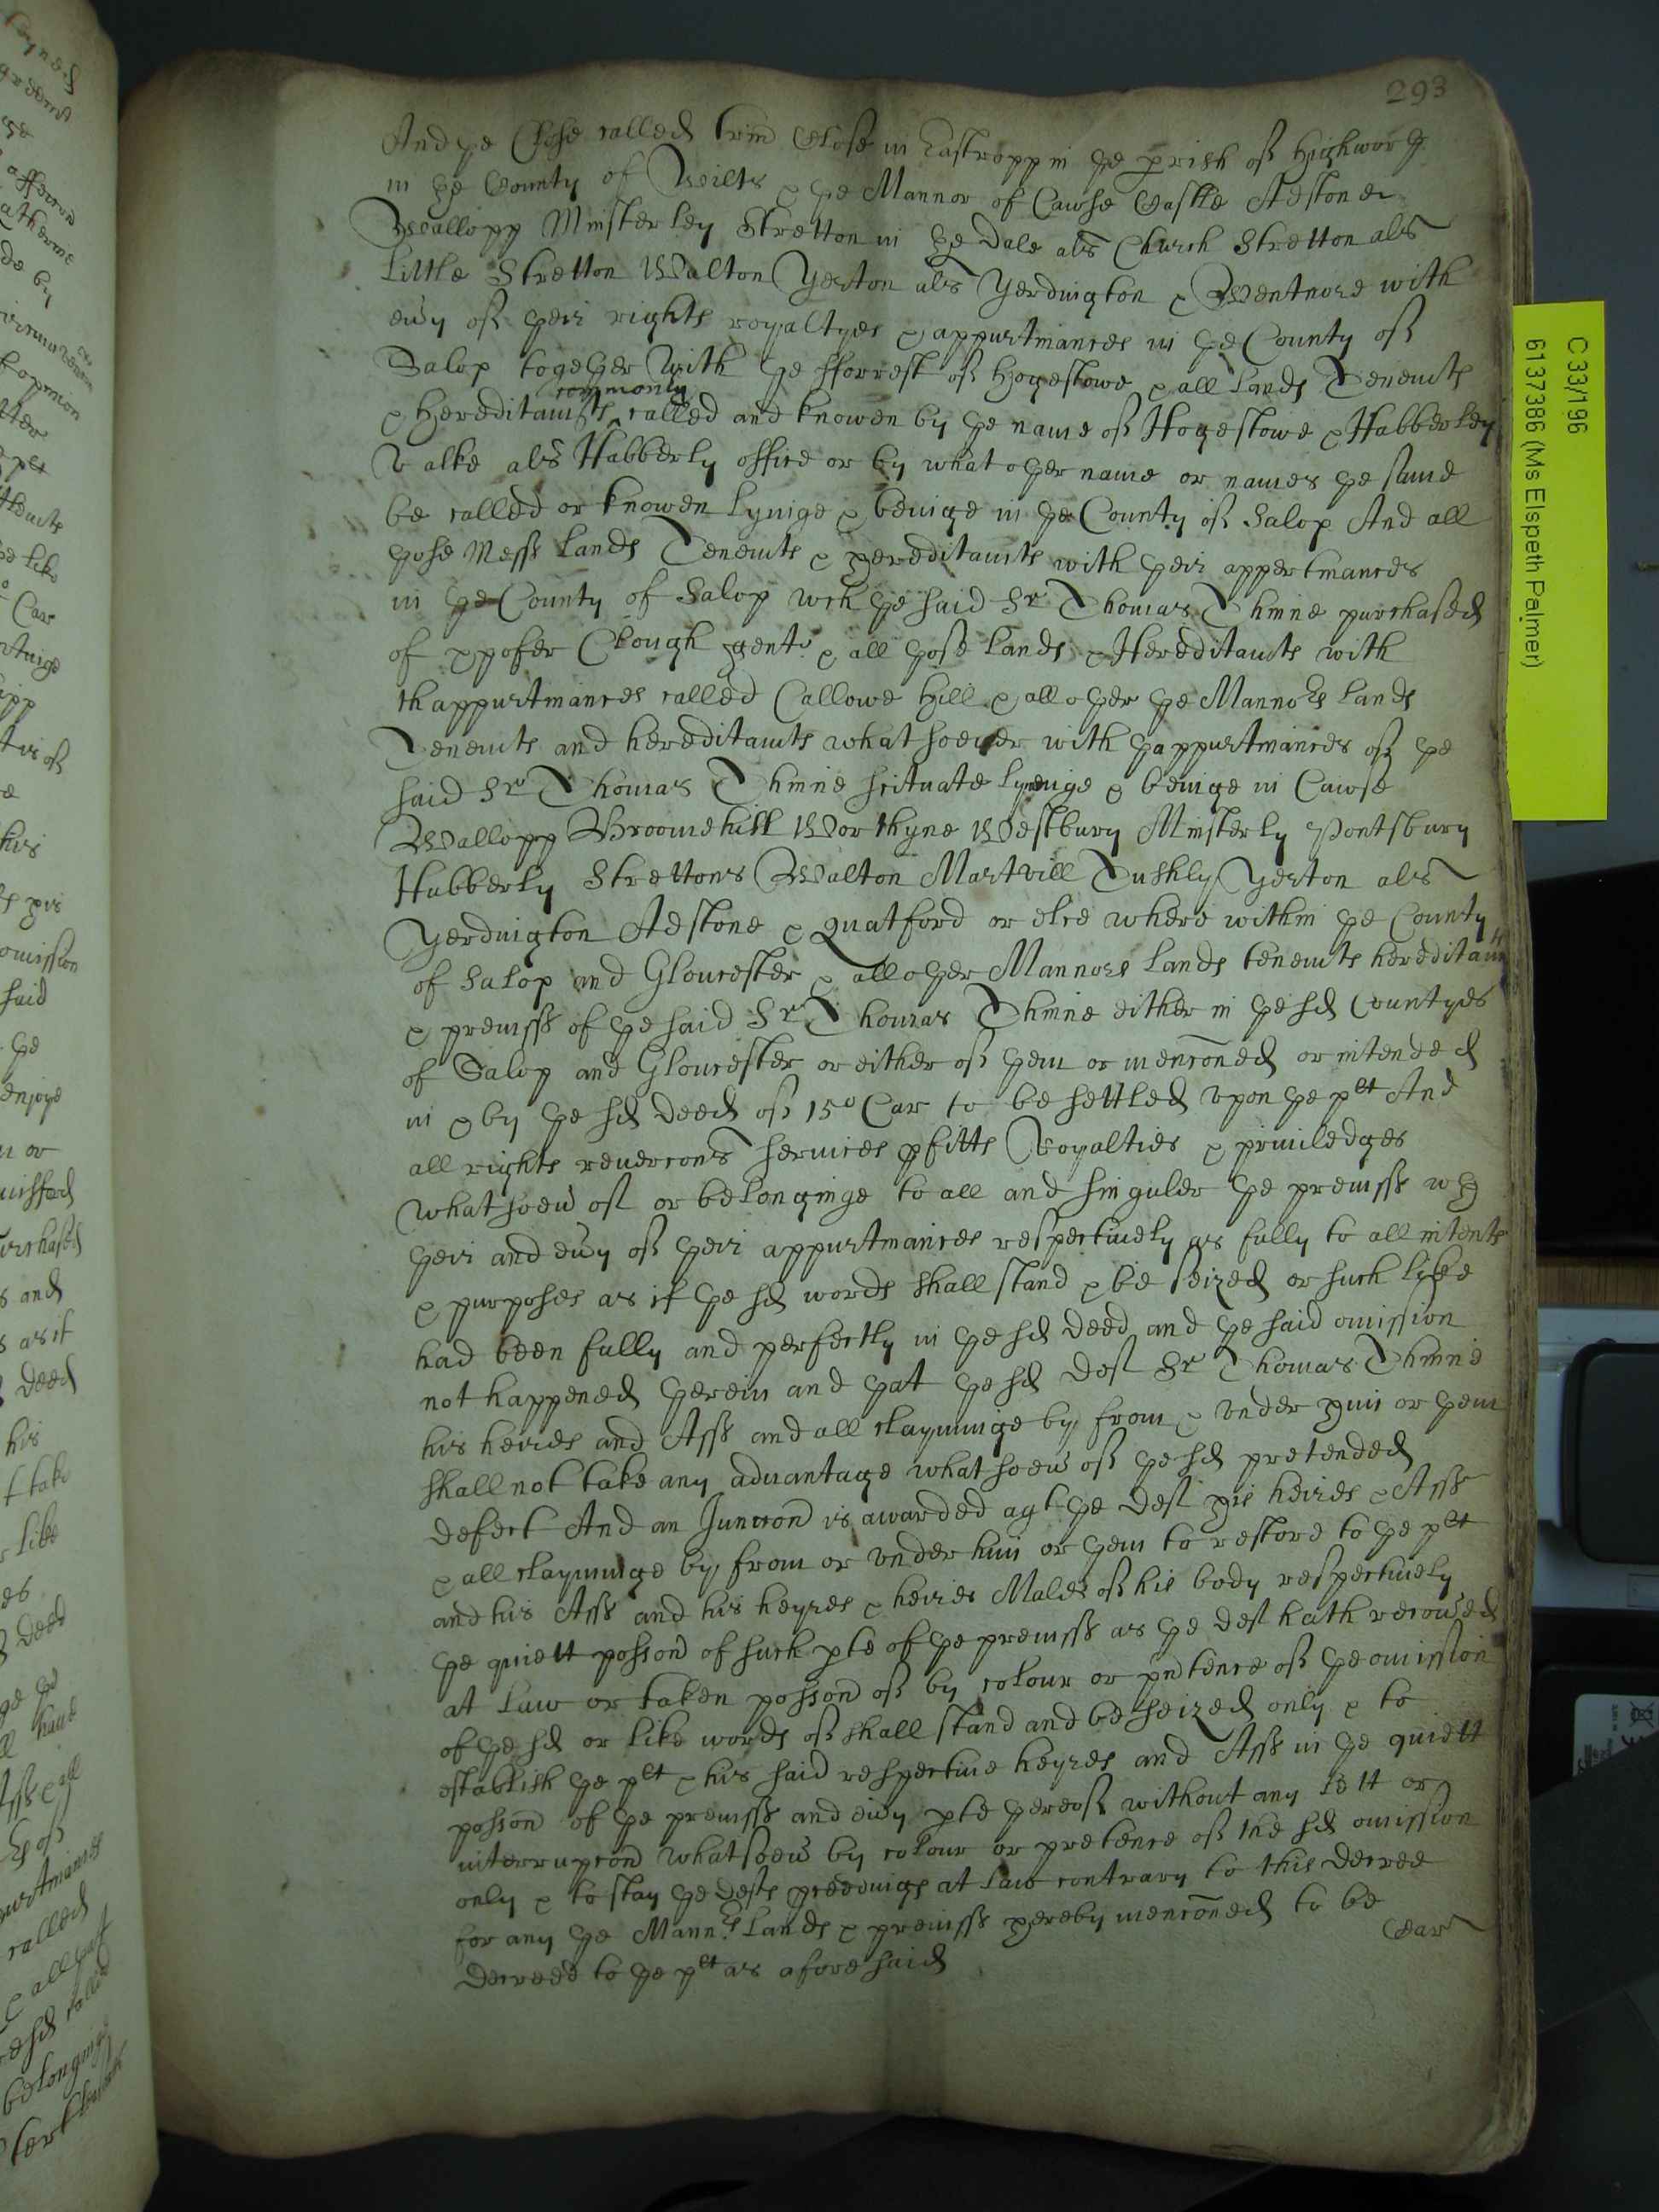 293
And ye Close called Trin Close in Eastropp in ye pish of Highworth
in ye County of Weilts & ye Mannor of Cawse Castle Aestone
Wallopp Minsterley Stretton in ye Dale als Church Stretton als
Little Stretton Walton Yerton als Yerdington & Wentnore with
euy of yeir rights royaltyes & appurtinances in ye County of
Salop togeyer with ye fforrest of Hogestowe & all lands Tenemts
commonly
& hereditamts called and knowen by ye name of Hogestowe & Habberley
Walke als Habberly office or by what oyer name or names ye same
be called or knowen lyinge & beinge in ye County of Salop And all
yose Mess lands Tenemts & hereditamts with yeir appertinances
in ye County of Salop wch ye said Sr Thomas Thinne purchased
of Clough gent & all yose lands & Hereditamts with
thappurtinances called Callowe Hill & all oyer ye Mannors lands
Tenemts and hereditamts whatsoeuer with yappurtinances of ye
said Sr Thomas Thinne scituate lyeinge & beinge in Cawse
Wallopp Broomehill Worthyne Westbury Minsterly Pontsbury
Habberly Strettons Walton Martvill Tushly Yerton als
Yerdington Aestone & Quatford or else where within ye County
of Salop and Gloucester & all oyer Mannors lands tenemts hereditamts
& premiss of ye said Sr Thomas Thinne either in ye sd Countyes
of Salop and Gloucester or either of yem or menconed or intended
in & by ye sd deed of 15o Car to be settled vpon ye plt And
all rights reuercons seruices pfitts Royalties & priuiledges
whatsoeu of or belonginge to all and singuler ye premiss wth
yeir and euy of yeir appurtinances respectiuely as fully to all intents
& purposes as if ye sd words shall stand & be seized or such like
had been fully and perfectly in ye sd deed and ye said omission
not happened yerein and yat ye sd deft Sr Thomas Thinne
his heires and Ass and all clayminge by from & vnder him or yem
shall not take any aduantage whatsoeu of ye sd pretended
defect And an Juncon is awarded agt ye deft his heires & Ass
& all clayminge by from or vnder him or yem to restore to ye plt
and his Ass and his heyres & heires Males of his body respectiuely
ye quiett posson of such pte of ye premiss as ye deft hath recoued
at law or taken posson of by colour or ptence of ye omission
of ye sd or like words of shall stand and be seized only & to
establish ye plt & his said respectiue heyres and Ass in ye quiett
posson of ye premiss and euy pte yereof without any lett or
interrupcon whatsoeu by colour or pretence of the sd omission
only & to stay ye defts pceedings at law contrary to this decree
for any ye Mannrs lands & premiss hereby menconed to be
decreed to ye plt as aforesaid
Car
C 33/196
6137386 (Ms Elspeth Palmer)